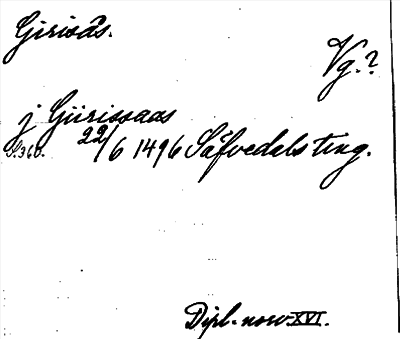 Girisås.
Vg.?
j Giirissaas
S. 360. 22/6 1496 Säfvedals ting.
Dipl. norv. XVI.